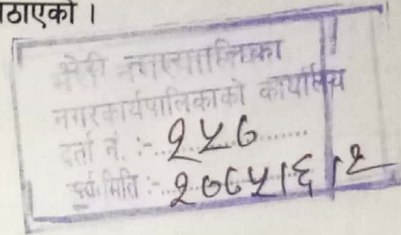 ठाएको ।
भेरी नगरपालिका
नगरकार्यपालिकाको कार्यालय
दर्ता नं. :- २५७
दर्ता मिति :- २०७५।६।२